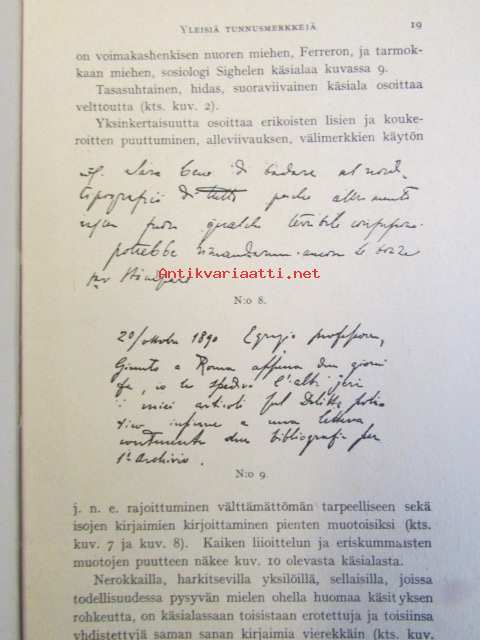 YLEISIÄ TUNNUSMERKKEJÄ 19
on voimakashenkisen nuoren miehen, Ferreron, ja tarmok-
kaan miehen, sosiologi Sighelen käsialaa kuvassa 9.
Tasasuhtainen, hidas, suoraviivainen käsiala osoittaa
velttoutta (kts. kuv. 2).
Yksinkertaisuutta osoittaa erikoisten lisien ja kouke-
roitten puuttuminen, alleviivauksen, välimerkkien käytön
Sara bene di badare al
tipografici di tutti perche altrimenti
fuori qualche terribile
potrebbe ancora le bozze
per
Antikvariaatti.net
N:o 8.
20/ottobre 1890 Egregio professore,
Giunto a Roma appena due giorni
fa, io le spedivo l'altr' jeri
i miei articoli
insieme a una lettera
contenente due bibliografie per
l'Archivio.
N:o 9.
j. n. e. rajoittuminen välttämättömän tarpeelliseen sekä
isojen kirjaimien kirjoittaminen pienten muotoisiksi (kts.
kuv. 7 ja kuv. 8). Kaiken liioittelun ja eriskummaisten
muotojen puutteen näkee kuv. 10 olevasta käsialasta.
Nerokkailla, harkitsevilla yksilöillä, sellaisilla, joissa
todellisuudessa pysyvän mielen ohella huomaa käsityksen
rohkeutta, on käsialassaan toisistaan erotettuja ja toisiinsa
yhdistettyjä saman sanan kirjaimia vierekkäin (kts. kuv.